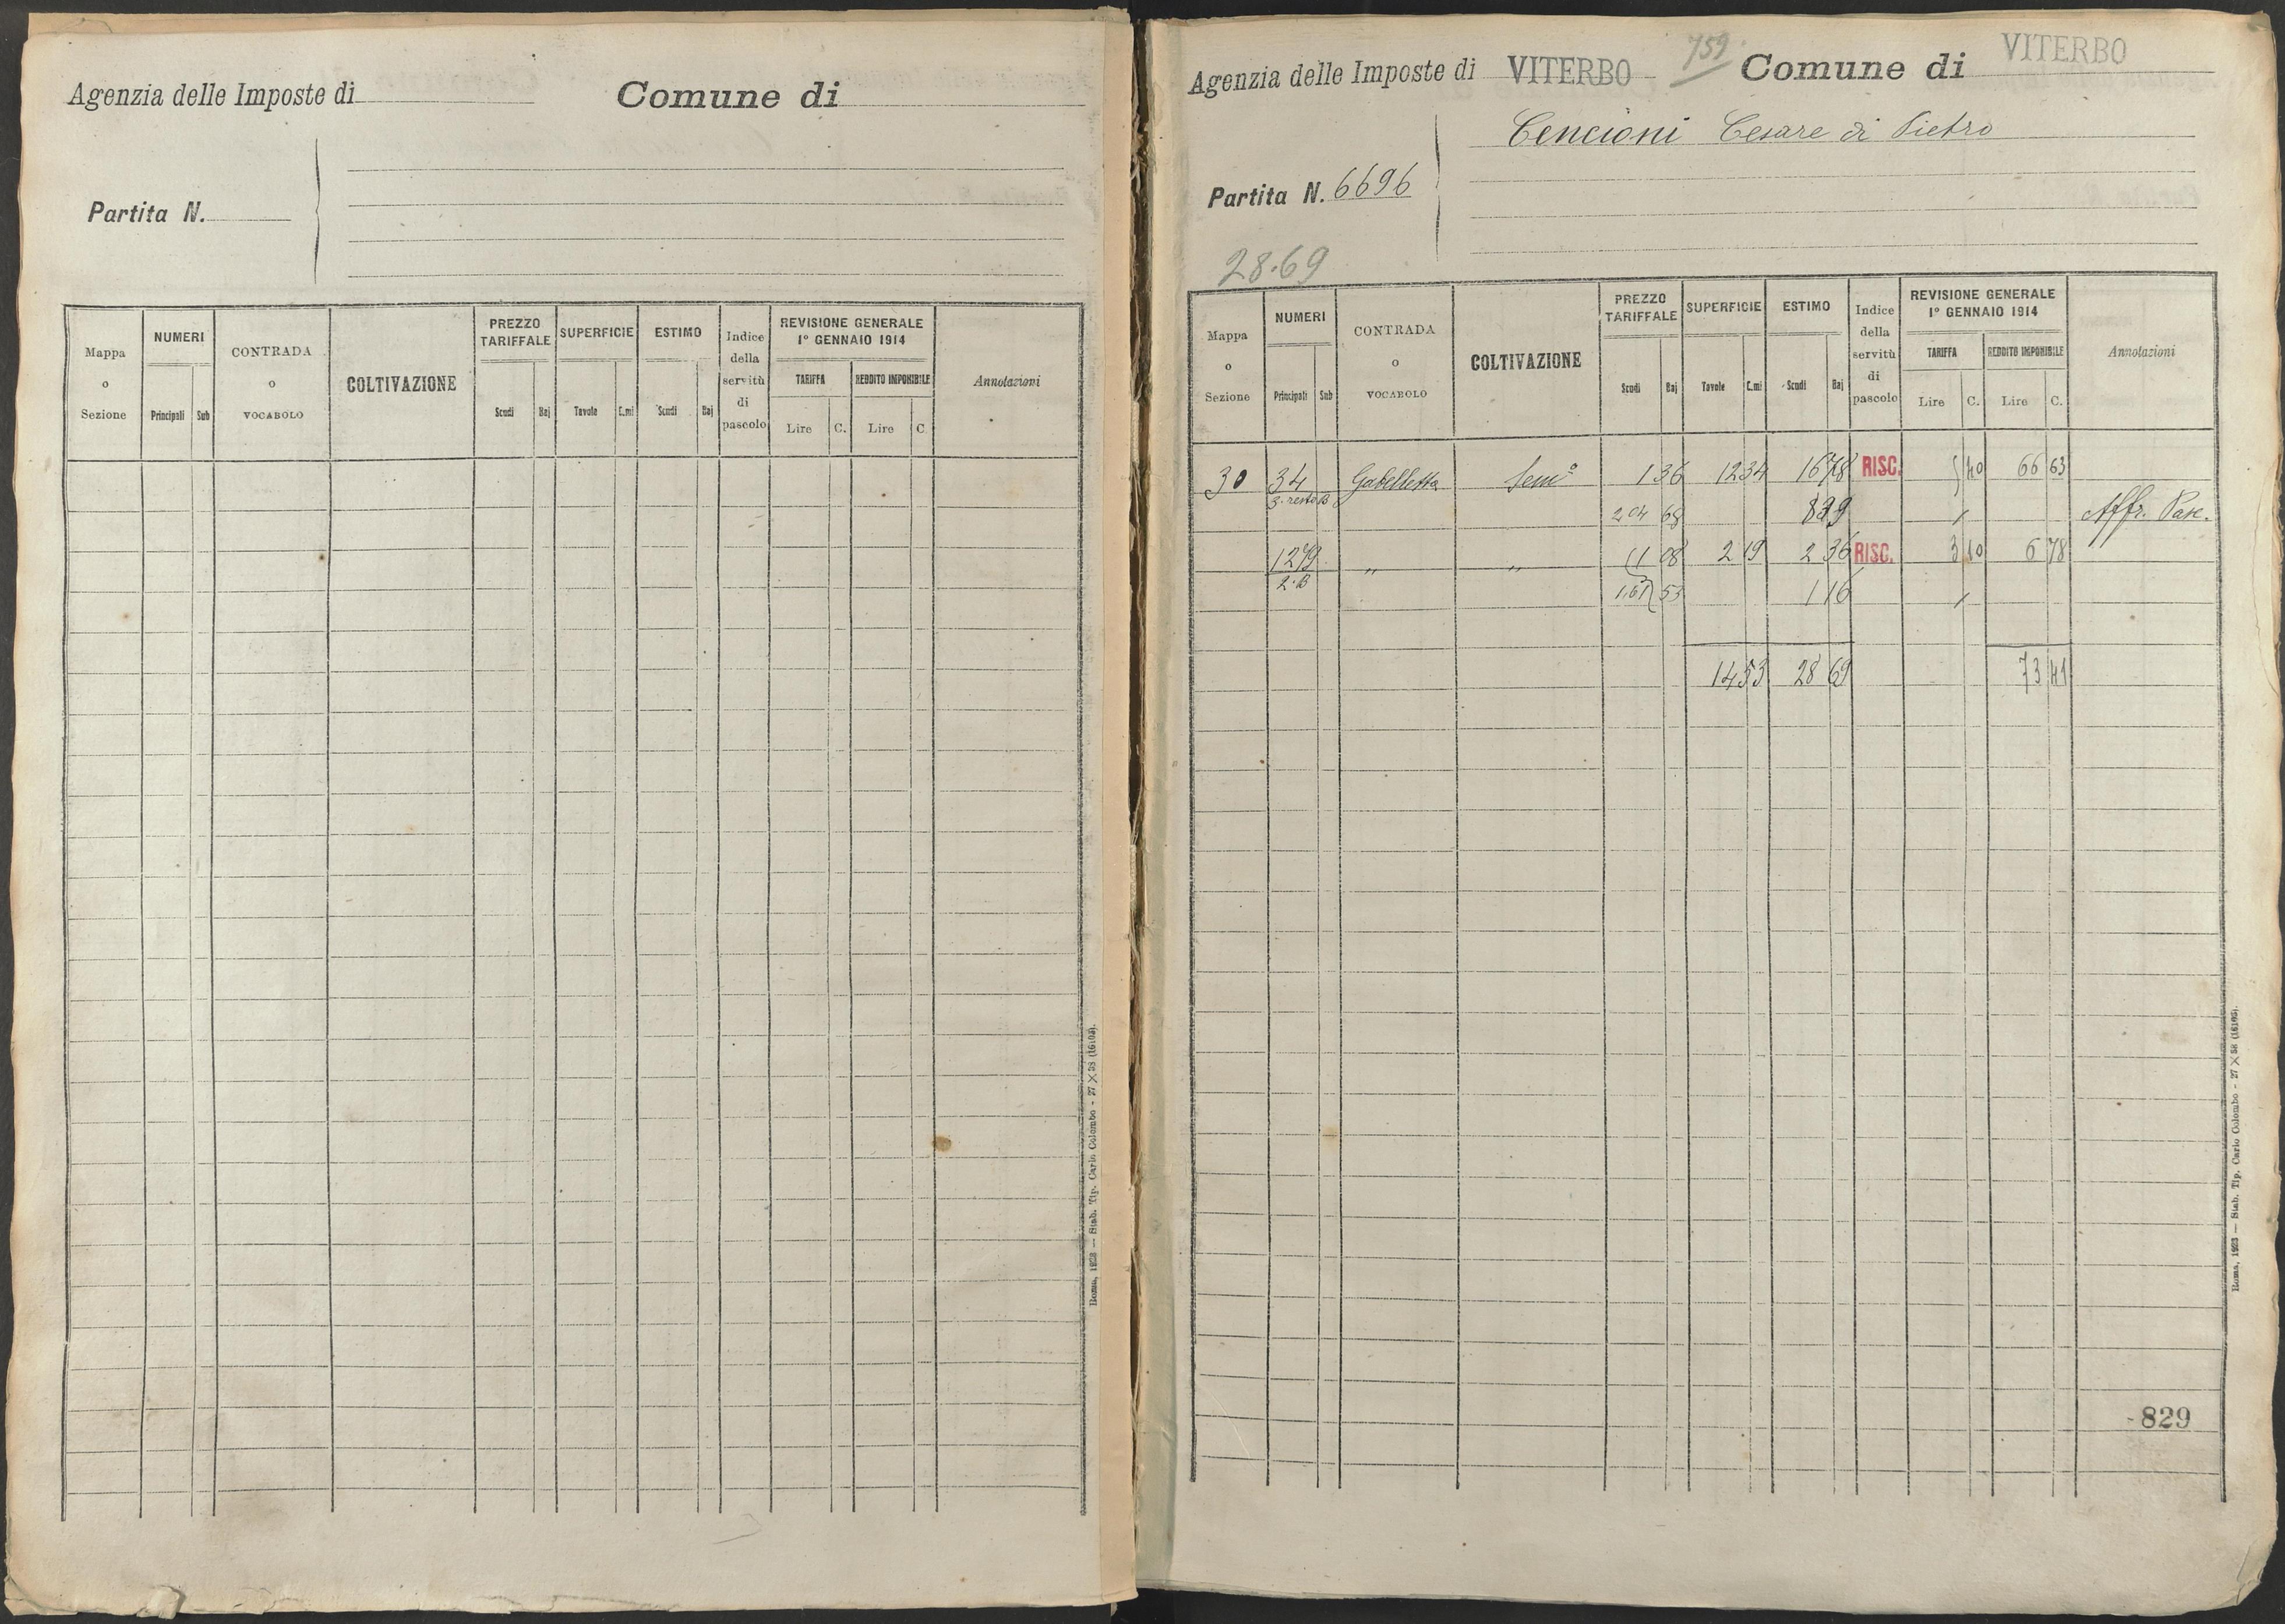 Agenzia delle Imposte di
Comune di
Partita N.
Mappa o Sezione
NUMERI
Principali Sub
CONTRADA o VOCABOLO
COLTIVAZIONE
PREZZO TARIFFALE
Scudi Baj
SUPERFICIE
Tavole C.mi
ESTIMO
Scudi Baj
Indice della servitù di pascolo
REVISIONE GENERALE 1° GENNAIO 1914
TARIFFA
Lire C.
REDDITO IMPONIBILE
Lire C.
Annotazioni
Roma, 1923 — Stab. Tip. Carlo Colombo - 27 X 38 (16105).
759
Agenzia delle Imposte di VITERBO Comune di VITERBO
Cencioni Cesare di Pietro
Partita N. 6696
28.69
Mappa o Sezione
NUMERI
Principali Sub
CONTRADA o VOCABOLO
COLTIVAZIONE
PREZZO TARIFFALE
Scudi Baj
SUPERFICIE
Tavole C.mi
ESTIMO
Scudi Baj
Indice della servitù di pascolo
REVISIONE GENERALE 1° GENNAIO 1914
TARIFFA
Lire C.
REDDITO IMPONIBILE
Lire C.
Annotazioni
30 34 Gabelletta Sem° 1 36 12 34 16 78 RISC. 5 40 66 63
3. resto B
2 04 68 8 39 Affr. Pasc.
1279 " " 1 08 2 19 2 36 RISC. 3 10 6 78 "
2. B
1.61 53 1 16
14 53 28 69 73 41
829
Roma, 1923 — Stab. Tip. Carlo Colombo - 27 X 38 (16105).